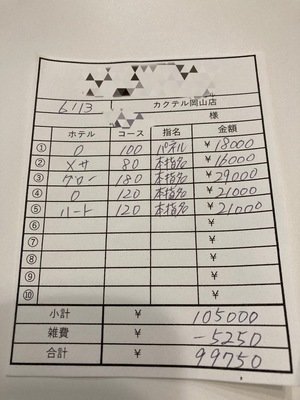 6/13 カクテル岡山店
様
ホテル コース 指名 金額
① O 100 パネル ¥18000
② メサ 80 本指名 ¥16000
③ グロー 180 本指名 ¥29000
④ O 120 本指名 ¥21000
⑤ ハート 120 本指名 ¥21000
⑥ ¥
⑦ ¥
⑧ ¥
⑨ ¥
⑩ ¥
小計 ¥ 105000
雑費 ¥ -5250
合計 ¥ 99750